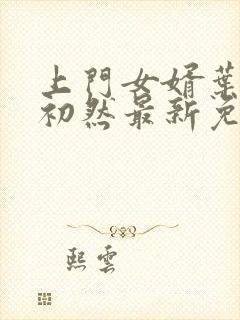 上門女婿葉
初然最新免
熙雲